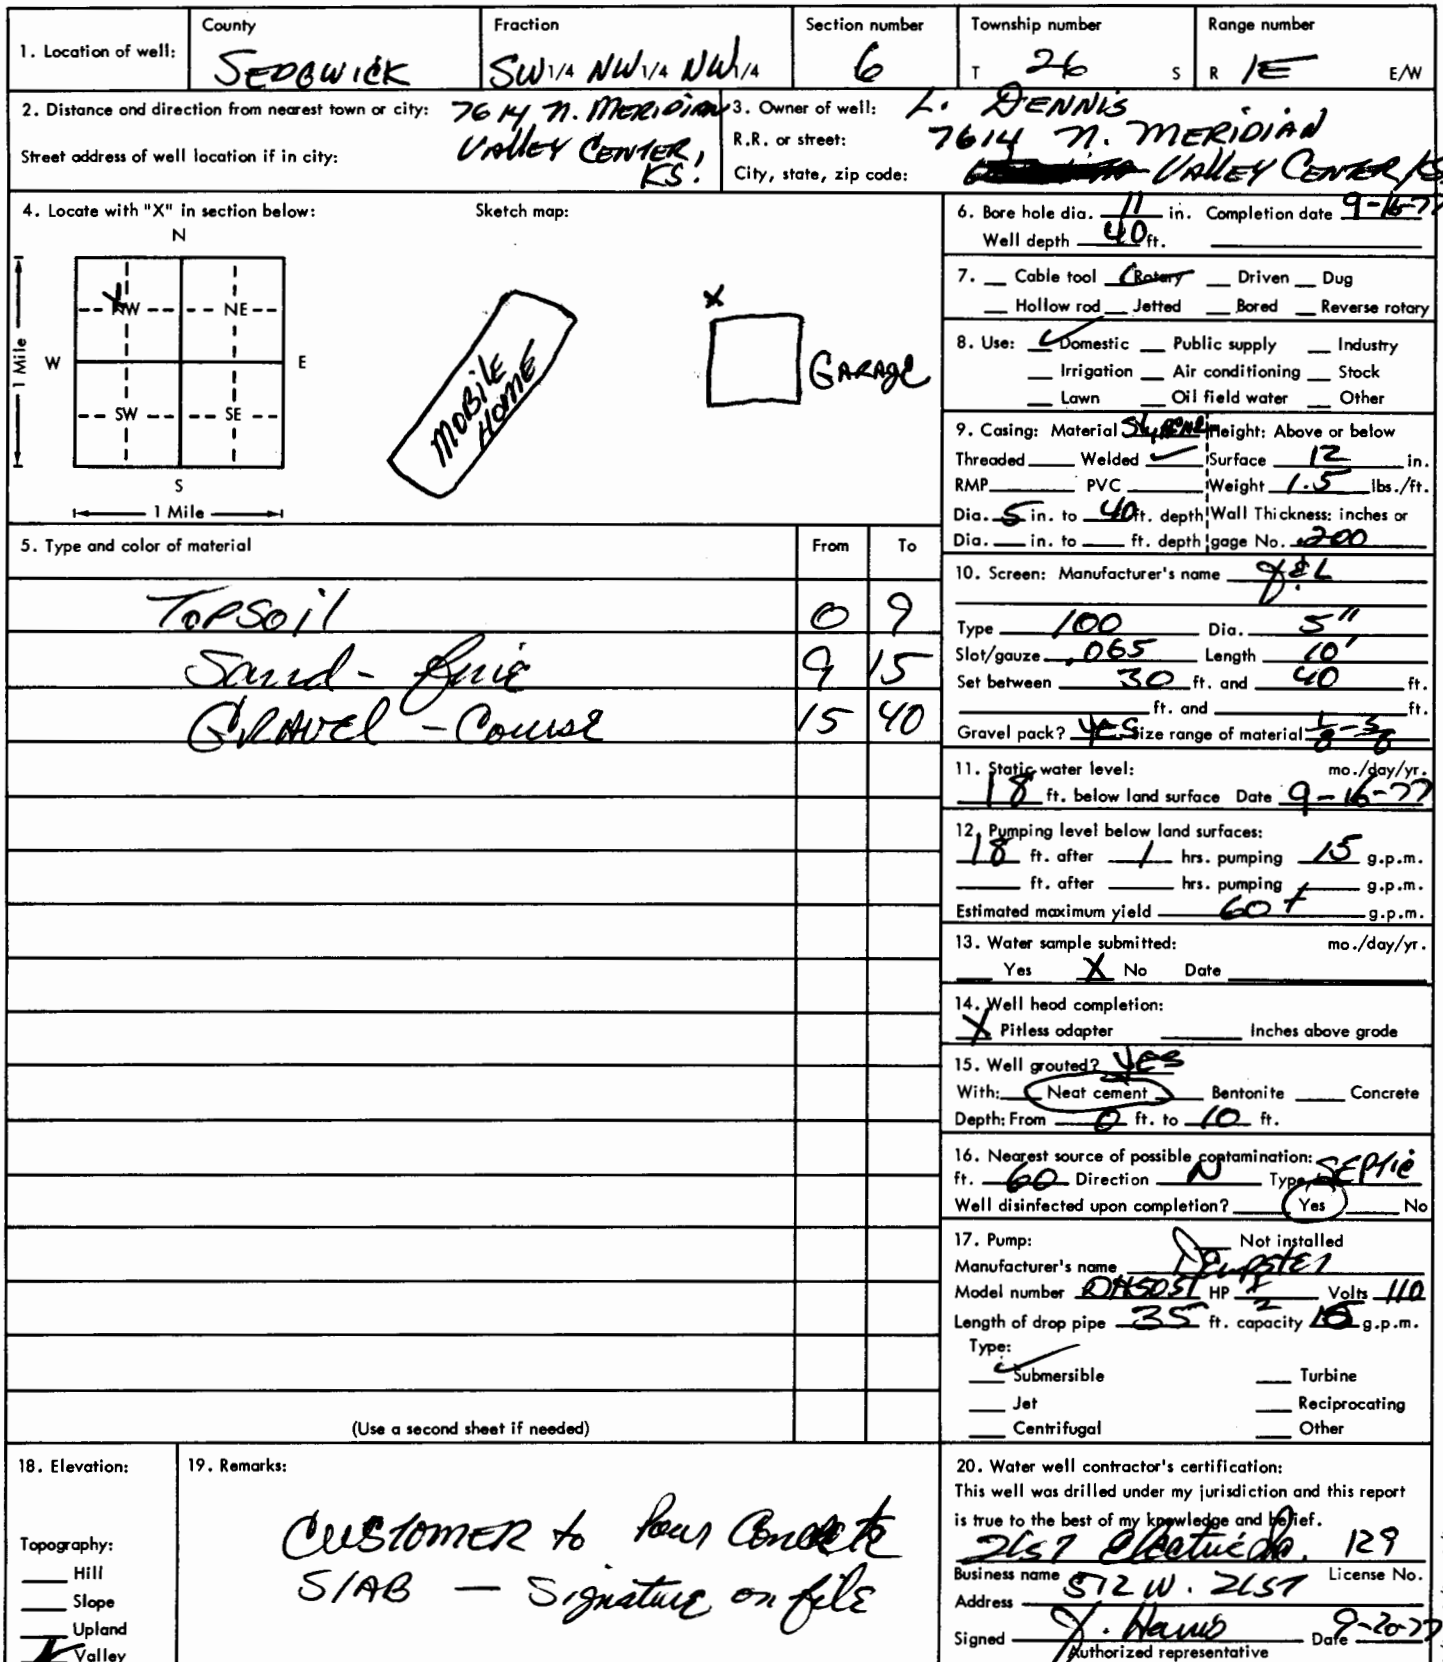 1. Location of well:
County
SEDGWICK
Fraction
SW 1/4 NW 1/4 NW 1/4
Section number
6
Township number
T 26 S
Range number
R 1E E/W
2. Distance and direction from nearest town or city: 7614 N. MERIDIAN
Street address of well location if in city: VALLEY CENTER,
KS.
3. Owner of well: L. DENNIS
R.R. or street: 7614 N. MERIDIAN
City, state, zip code: VALLEY CENTER, KS
4. Locate with "X" in section below:
N
X
NW NE
W E
SW SE
S
1 Mile
1 Mile
Sketch map:
MOBILE
HOME
X
GARAGE
5. Type and color of material From To
TOPSOIL 0 9
Sand - fine 9 15
GRAVEL - Course 15 40
(Use a second sheet if needed)
6. Bore hole dia. 11 in. Completion date 9-16-77
Well depth 40 ft.
7. Cable tool Rotary Driven Dug
Hollow rod Jetted Bored Reverse rotary
8. Use: Domestic Public supply Industry
Irrigation Air conditioning Stock
Lawn Oil field water Other
9. Casing: Material Height: Above or below
Threaded Welded Surface 12 in.
RMP PVC Weight 1.5 lbs./ft.
Dia. 5 in. to 40 ft. depth Wall Thickness: inches or
Dia. in. to ft. depth gage No. .200
10. Screen: Manufacturer's name J & L
Type 100 Dia. 5"
Slot/gauze .065 Length 10'
Set between 30 ft. and 40 ft.
ft. and ft.
Gravel pack? Yes Size range of material 1/8 - 3/8
11. Static water level: mo./day/yr.
18 ft. below land surface Date 9-16-77
12. Pumping level below land surfaces:
18 ft. after 1 hrs. pumping 15 g.p.m.
ft. after hrs. pumping g.p.m.
Estimated maximum yield 60+ g.p.m.
13. Water sample submitted: mo./day/yr.
Yes X No Date
14. Well head completion:
X Pitless adapter Inches above grade
15. Well grouted? Yes
With: Neat cement Bentonite Concrete
Depth: From 0 ft. to 10 ft.
16. Nearest source of possible contamination:
ft. 60 Direction N Type SEPTIC
Well disinfected upon completion? Yes No
17. Pump: Not installed
Manufacturer's name Dempster
Model number HP 1/2 Volts 110
Length of drop pipe 35 ft. capacity g.p.m.
Type:
Submersible Turbine
Jet Reciprocating
Centrifugal Other
18. Elevation:
Topography:
Hill
Slope
Upland
Valley
19. Remarks:
CUSTOMER to Pour Concrete
SLAB - Signature on file
20. Water well contractor's certification:
This well was drilled under my jurisdiction and this report
is true to the best of my knowledge and belief.
21st Electric Co. 129
Business name License No.
Address 512 W. 21st
Signed J. Harris Date 9-20-77
Authorized representative